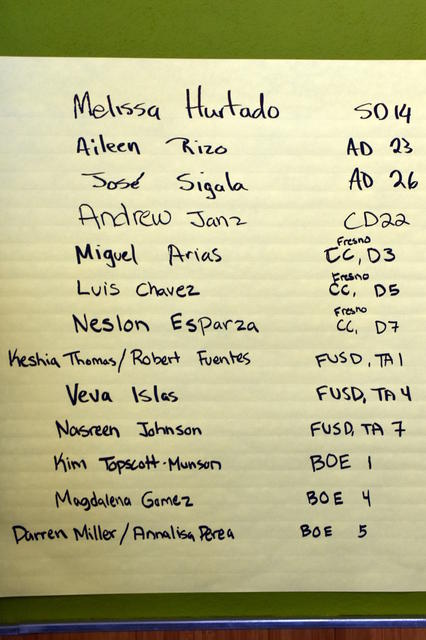 Melissa Hurtado SD14
Aileen Rizo AD 23
José Sigala AD 26
Andrew Janz CD22
Miguel Arias Fresno CC, D3
Luis Chavez Fresno CC, D5
Neslon Esparza Fresno CC, D7
Keshia Thomas/Robert Fuentes FUSD, TA1
Veva Islas FUSD, TA 4
Nasreen Johnson FUSD, TA 7
Kim Topscott-Munson BOE 1
Magdalena Gomez BOE 4
Darren Miller/Annalisa Perea BOE 5